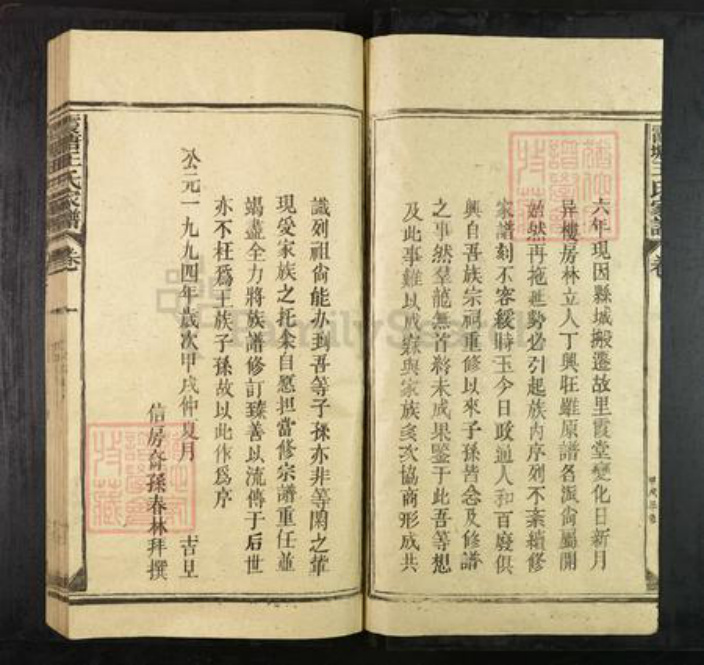 六年現因縣城搬遷故里霞堂變化日新月
异樓房林立人丁興旺雖原譜各派尙屬開
始然再拖延勢必引起族内序列不紊續修
家譜刻不容緩時玉今日政通人和百廢俱
興自吾族宗祠重修以來子孫皆念及修譜
之事然羣龍無首終未成果鑒于此吾等想
及此事難以成寐與家族多次協商形成共
甲戌
識列祖尙能办到吾等子孫亦非等閑之輩
現受家族之托余自愿担當修宗譜重任並
竭盡全力將族譜修訂臻善以流傳于后世
亦不枉爲王族子孫故以此作爲序
公元一九九四年歲次甲戌仲夏月 吉旦
信房裔孫春林拜撰
霞塘王氏家譜 卷一
FamilySearch